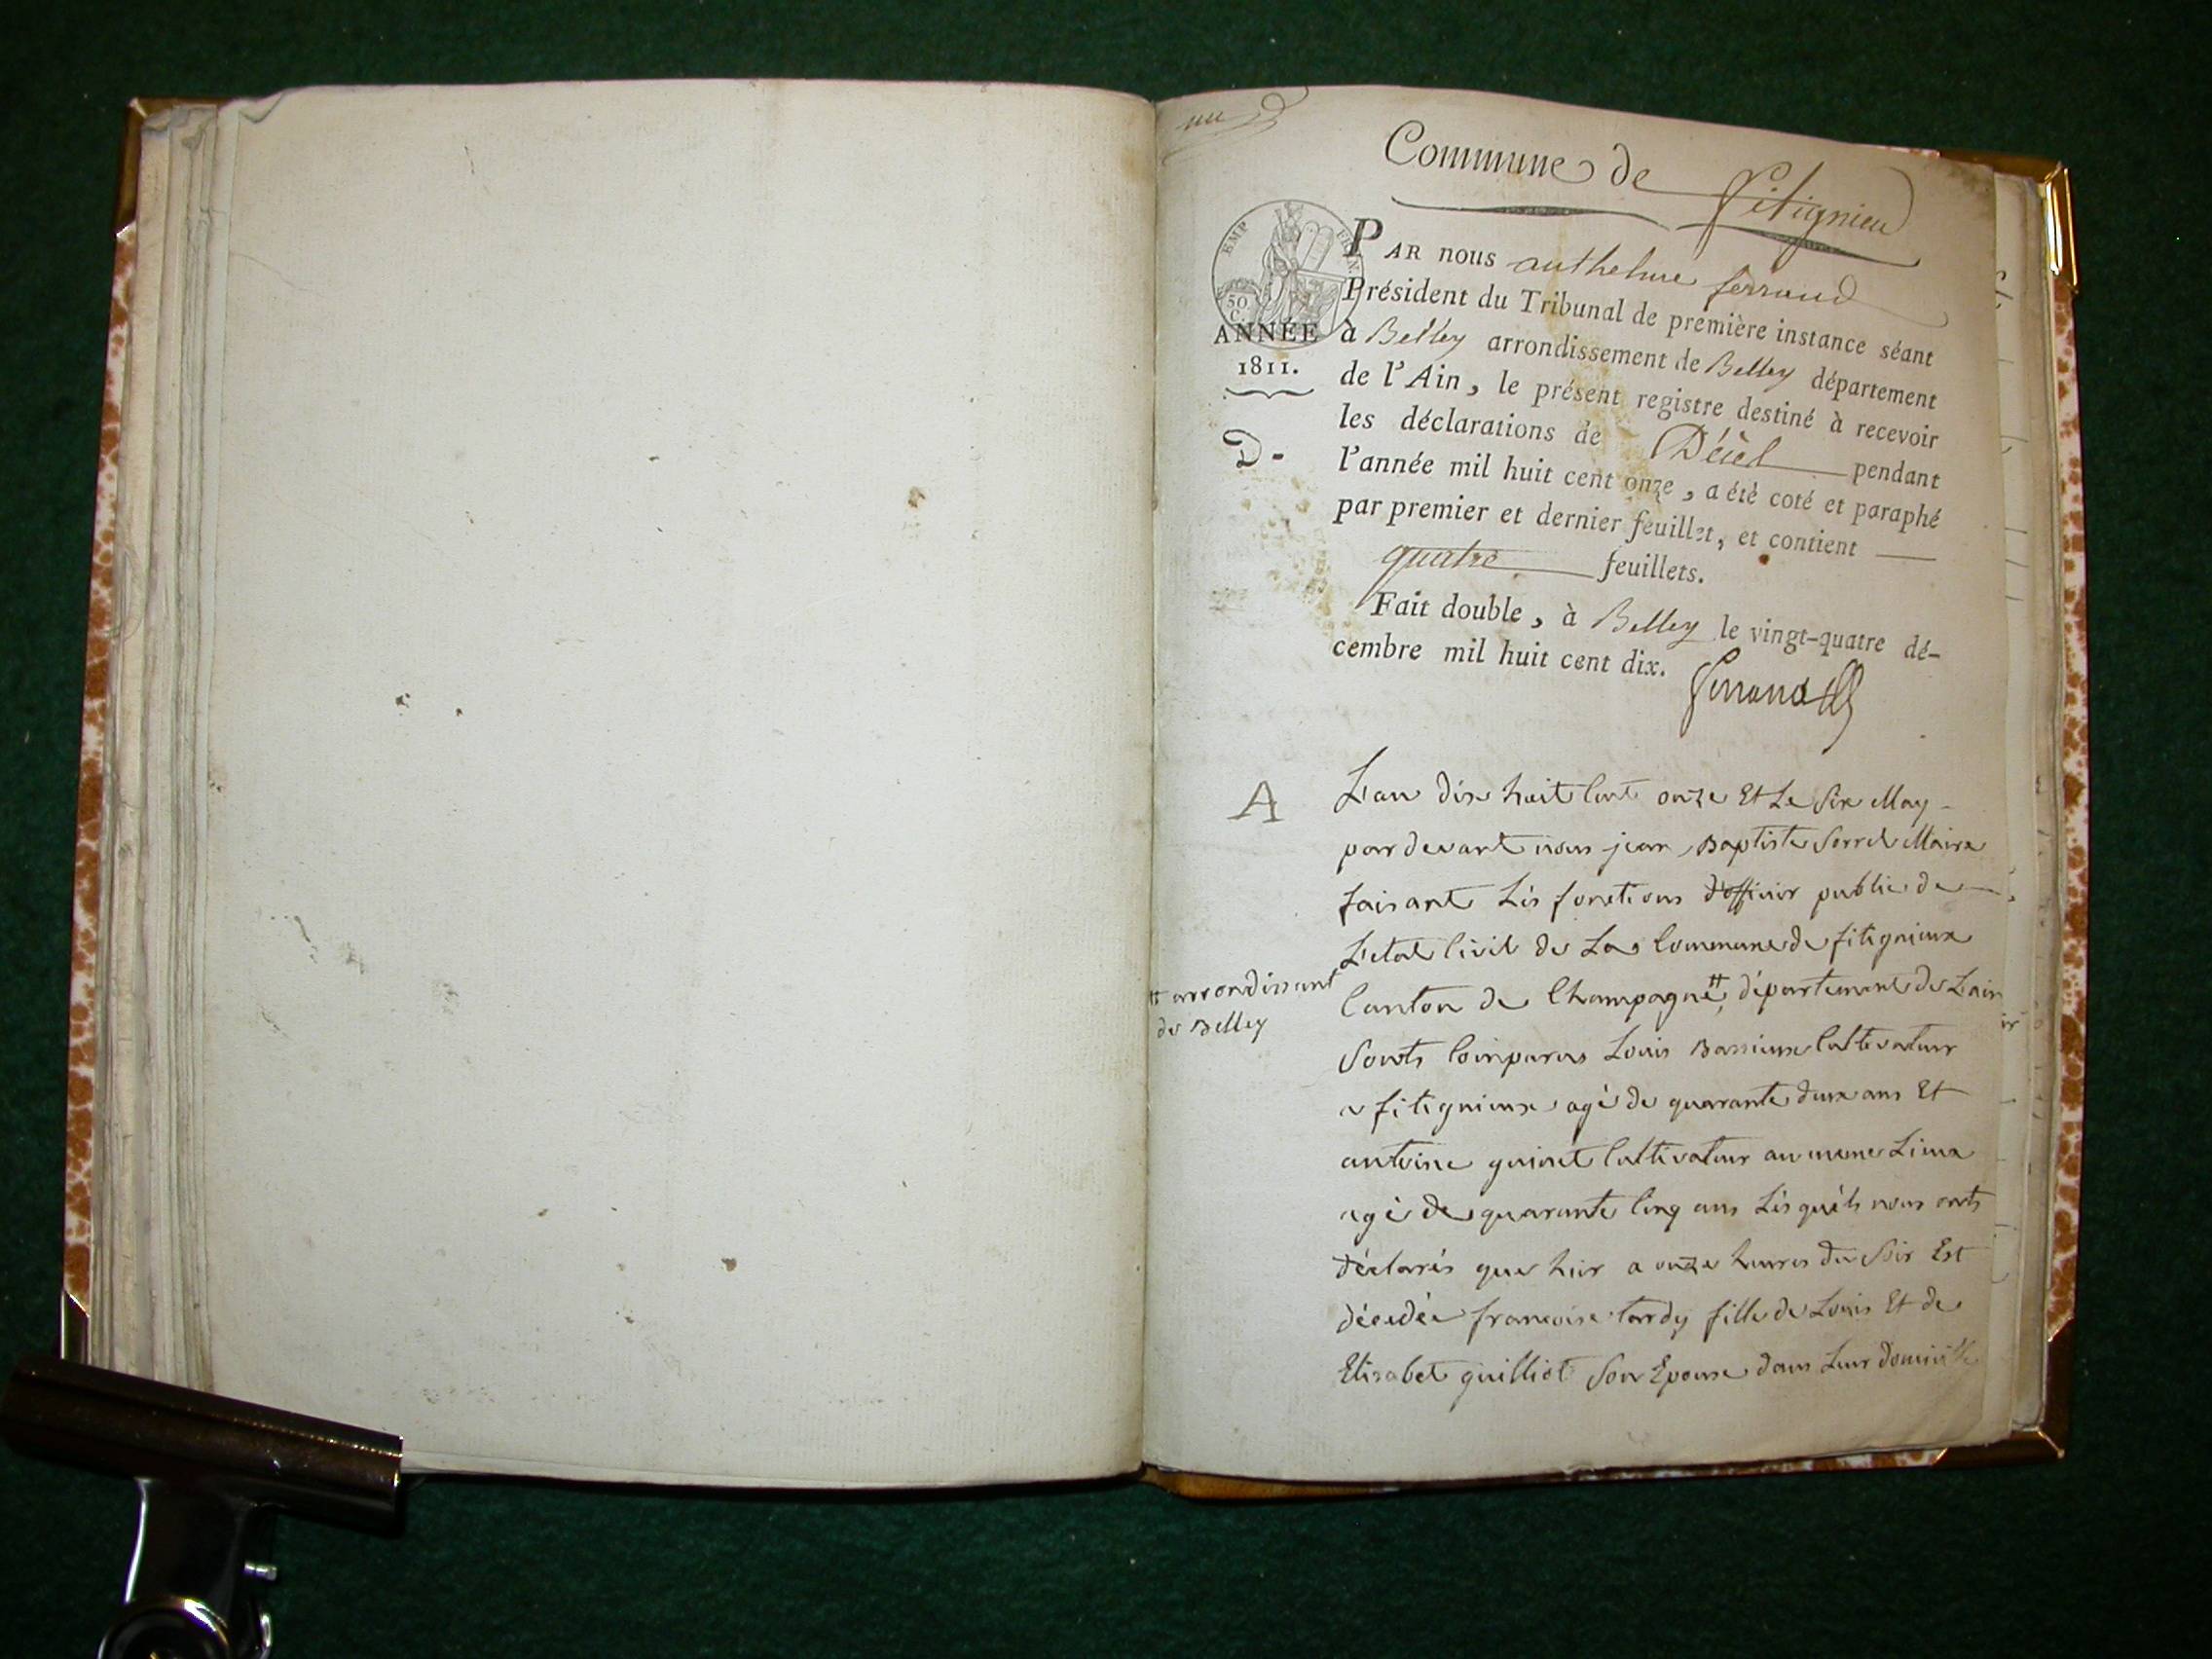 un
Commune de Fitignieu
EMP FRAN
50 C.
ANNÉE
1811.
D.
PAR nous anthelme ferrand
Président du Tribunal de première instance séant
à Belley arrondissement de Belley département
de l'Ain, le présent registre destiné à recevoir
les déclarations de Décès pendant
l'année mil huit cent onze, a été coté et paraphé
par premier et dernier feuillet, et contient
quatre feuillets.
Fait double, à Belley le vingt-quatre dé-
cembre mil huit cent dix.
ferrand
A
L'an dix huit Cent onze Et Le Six May
par devant nous jean Baptiste Sorrel Maire
faisant Lés fonctions d'officier public de
L'etat Civil de La Commune de fitignieux
Canton de Champagne, département de L'ain
# arrondissant
de Belley
Sonts Comparus Louis Bassieux Cultivateur
a fitignieux agé de quarante deux ans Et
antoine guinet Cultivateur au meme Lieux
agé de quarante Cinq ans Lésquéls nous onts
déclarés que hier a onze heures du Soir Est
décedée francoise tardy fille de Louis Et de
Elisabet guilliot Son Epouse dans Leur domicille